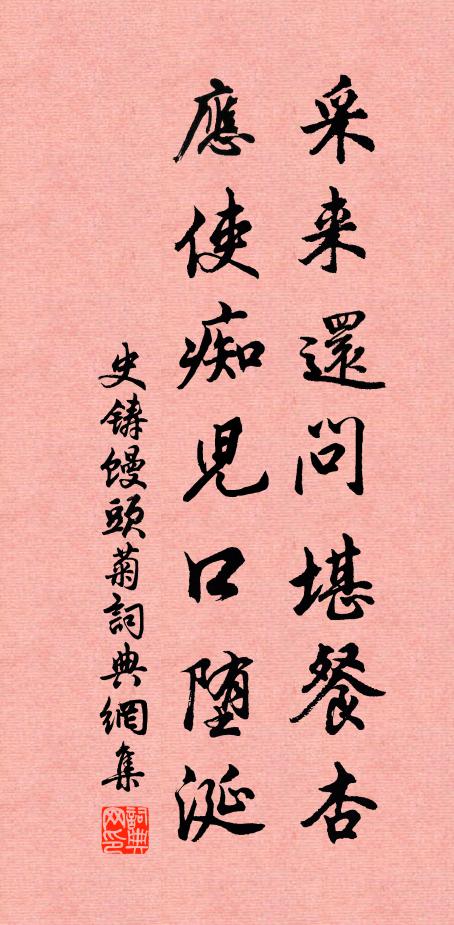 采来還問堪餐杏
應使痴兒口堕涎
史铸馒頭菊詞典網集
詞典网印